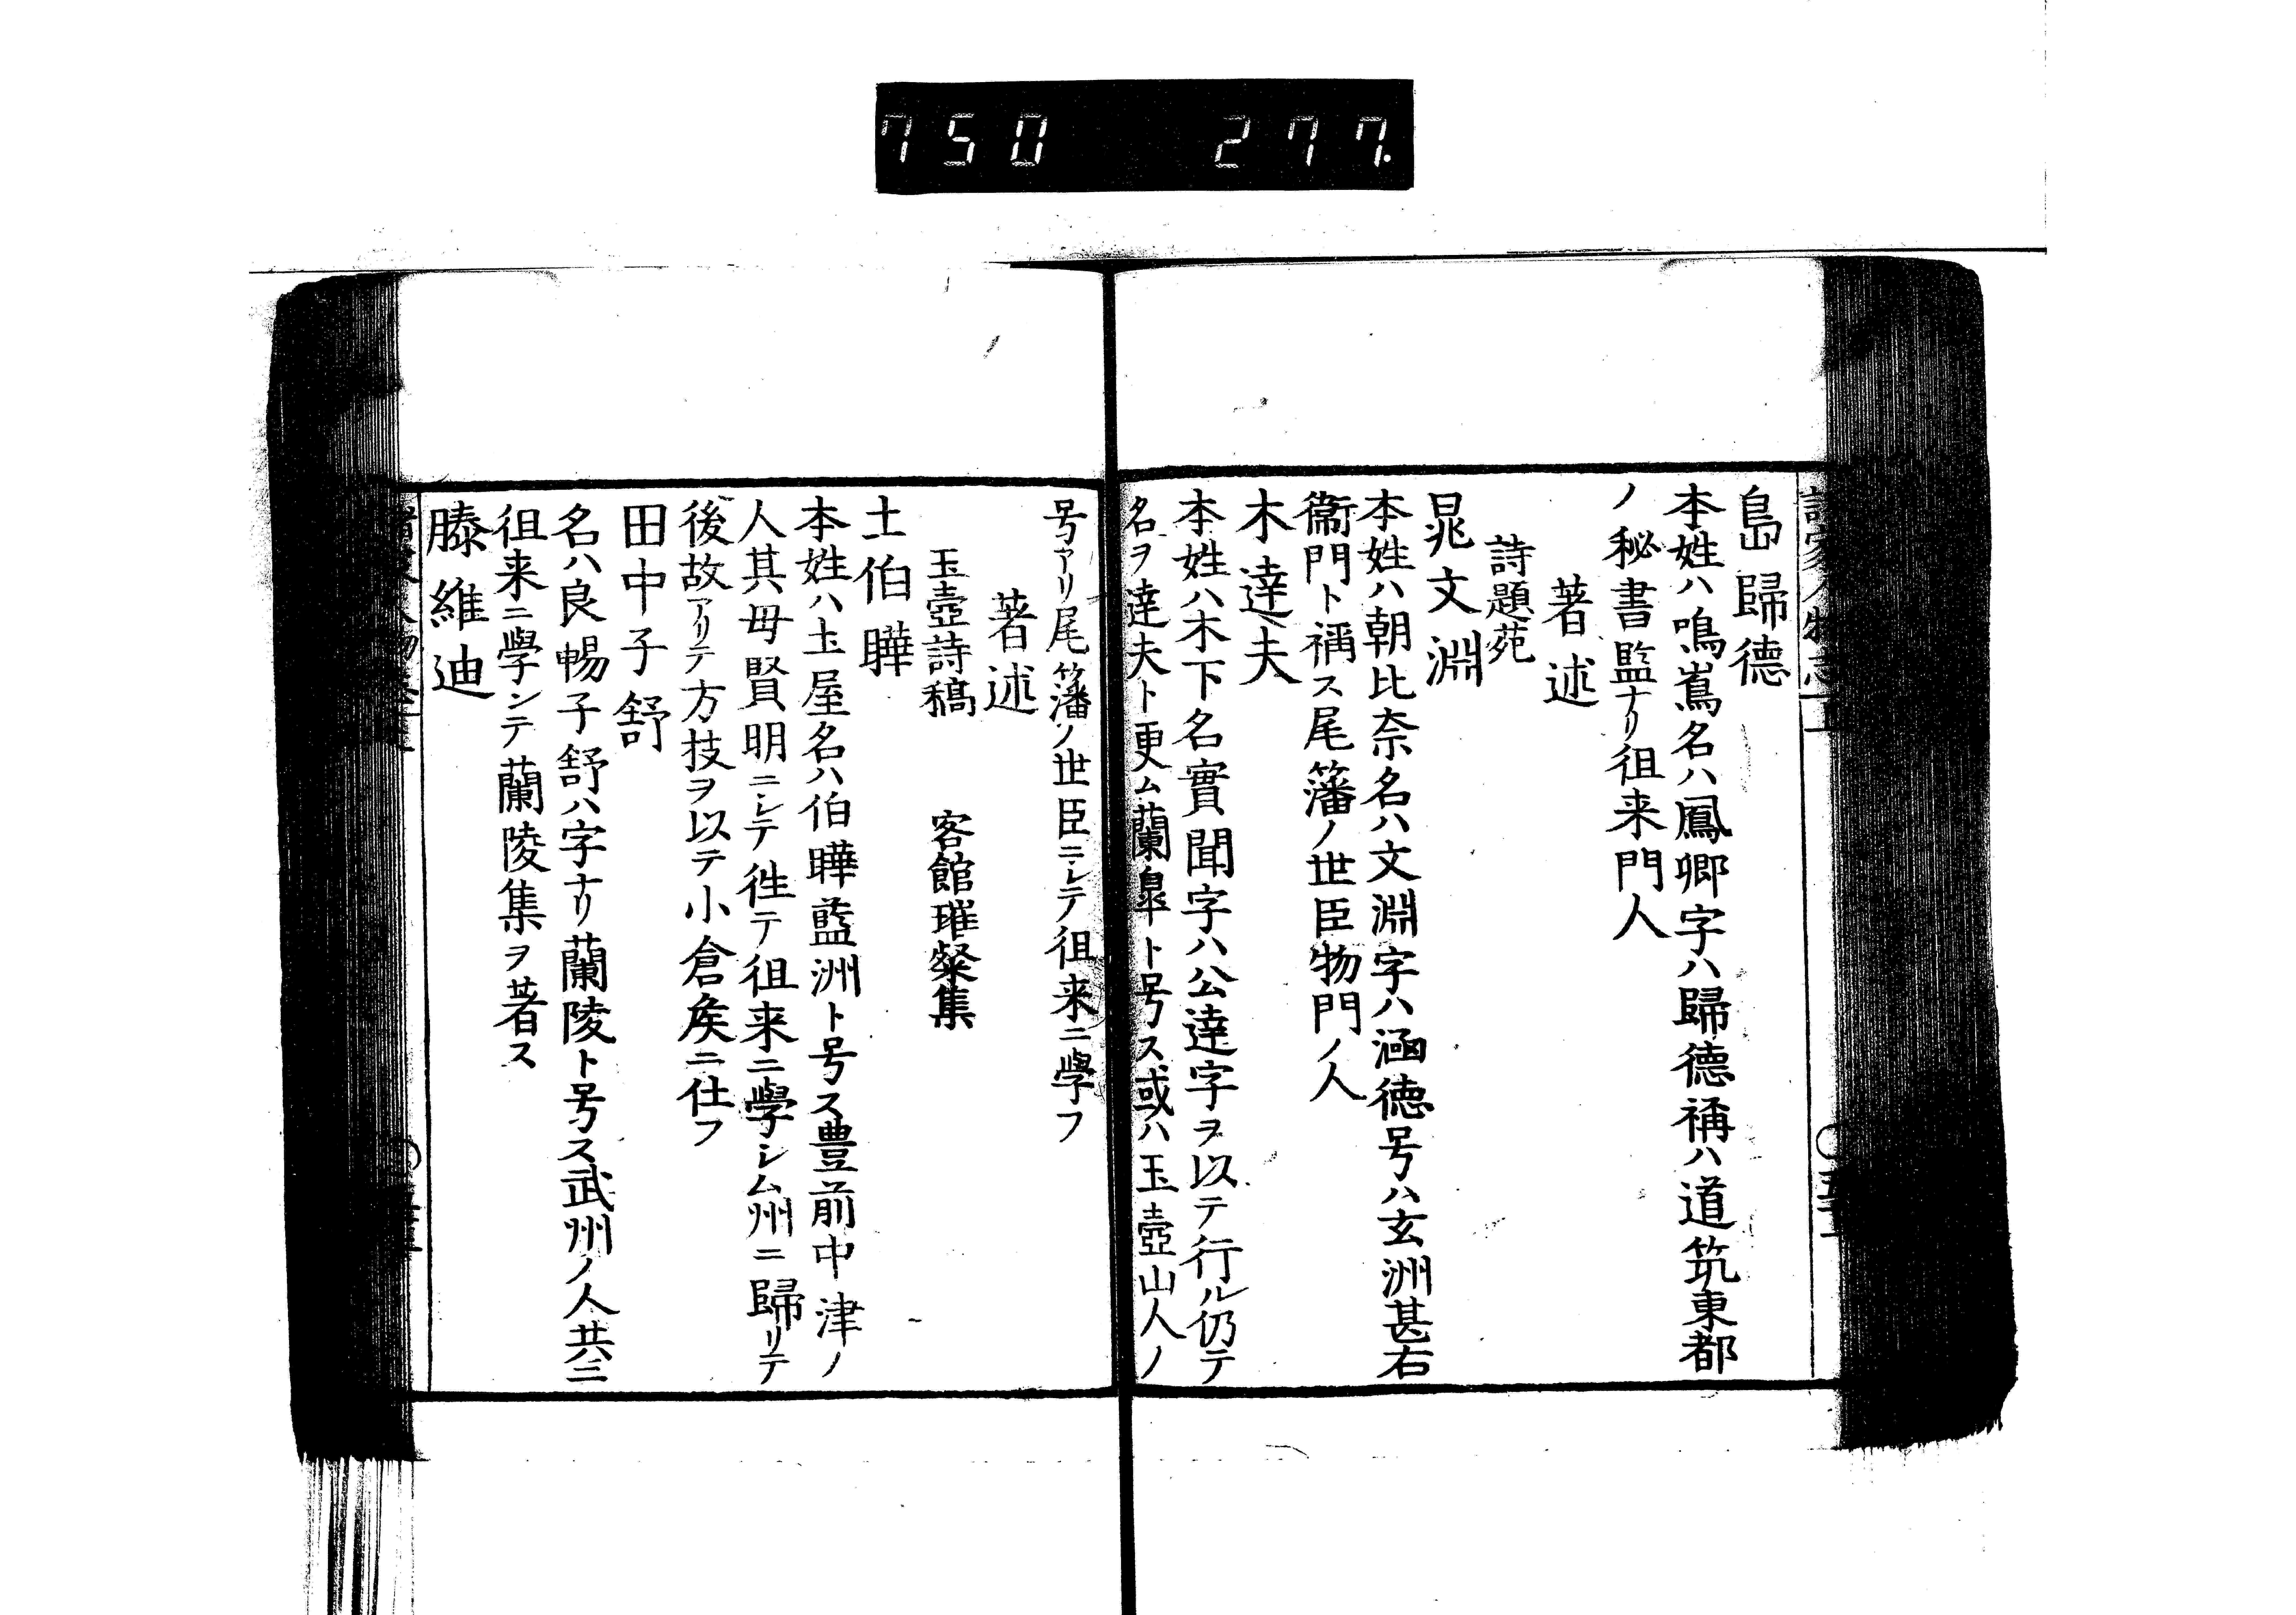 750 277.
島歸德
本姓ハ鳴嶌名ハ鳳卿字ハ歸德稱ハ道筑東都
ノ秘書監ナリ徂来門人
著述
詩題苑
晁文淵
本姓ハ朝比奈名ハ文淵字ハ涵德号ハ玄洲甚右
衞門ト稱ス尾藩ノ世臣物門ノ人
木達夫
本姓ハ木下名實聞字ハ公達字ヲ以テ行ル仍テ
名ヲ達夫ト更ム蘭皐ト号ス或ハ玉壺山人ノ
号アリ尾藩ノ世臣ニシテ徂来ニ學フ
著述
玉壺詩稿 客館璀粲集
土伯曄
本姓ハ土屋名ハ伯曄藍洲ト号ス豊前中津ノ
人其母賢明ニシテ徃テ徂来ニ學シム州ニ歸リテ
後故アリテ方技ヲ以テ小倉矦ニ仕フ
田中子舒
名ハ良暢子舒ハ字ナリ蘭陵ト号ス武州ノ人共ニ
徂来ニ學ンテ蘭陵集ヲ著ス
滕維迪